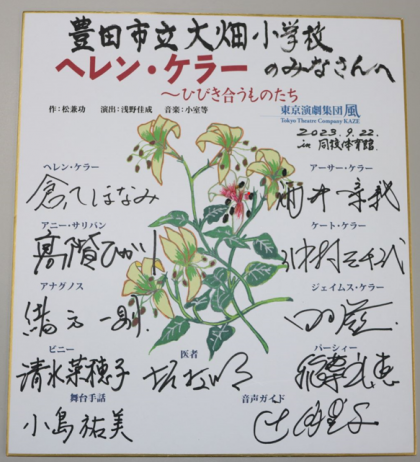 豊田市立大畑小学校
ヘレン・ケラー のみなさんへ
～ひびき合うものたち
作：松兼功 演出：浅野佳成 音楽：小室等
東京演劇集団 風
Tokyo Theatre Company KAZE
2023.9.22.
in 同校体育館
ヘレン・ケラー
倉八ほなみ
アーサー・ケラー
アニー・サリバン
高階ひかり
ケート・ケラー
アナグノス
緒方一則
ジェイムス・ケラー
ビニー
清水菜穂子
医者
パーシィー
舞台手話
小島祐美
音声ガイド